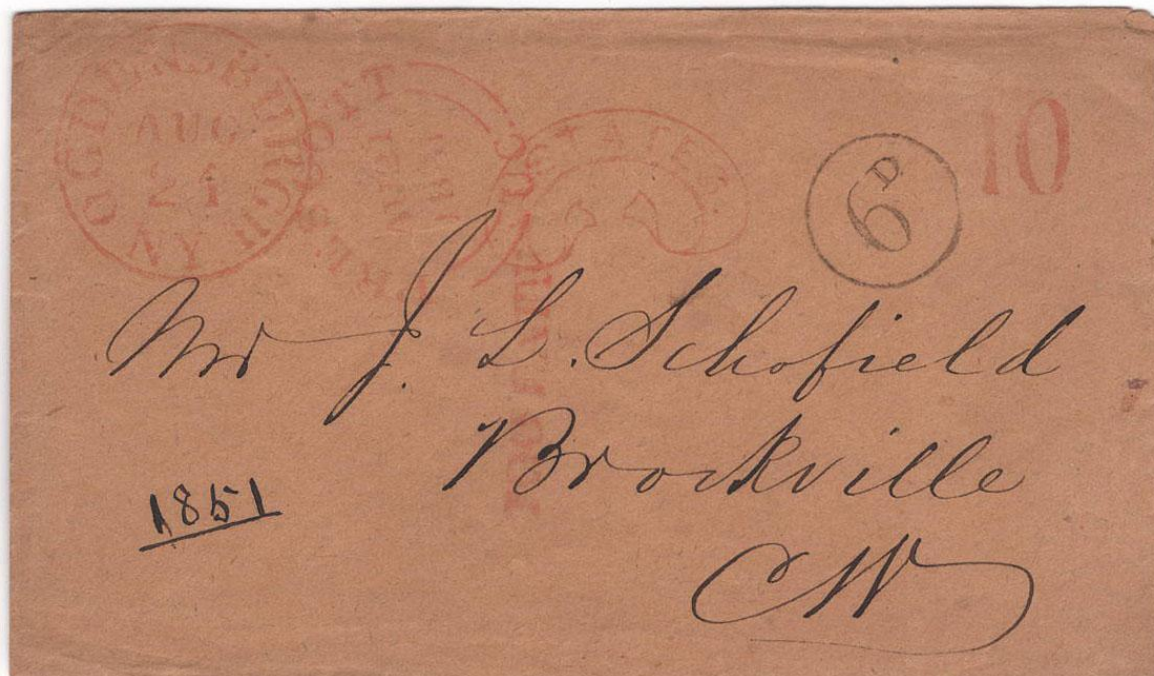 OGDENSBURGH
AUG
24
NY
STATES
6D
10
Mr J. L. Schofield
Brockville
CW
1851